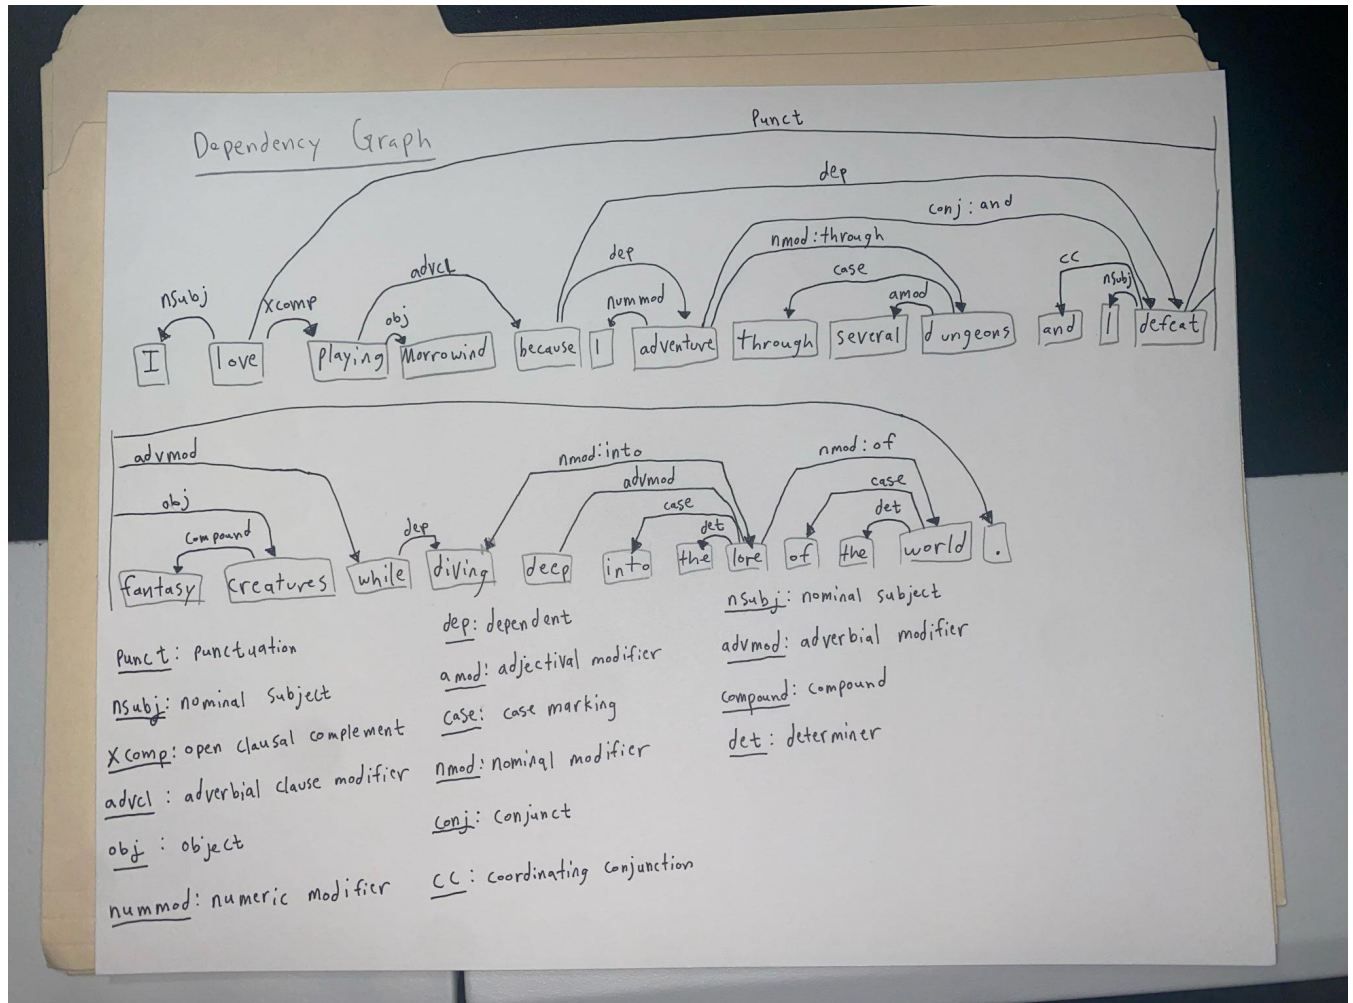 Dependency Graph
Punct
dep
conj: and
nmod: through
nsubj xcomp advcl obj dep nummod case amod cc nsubj
I love playing Morrowind because I adventure through several dungeons and I defeat
advmod nmod: into nmod: of
obj advmod case
compound dep case det det
fantasy creatures while diving deep into the lore of the world .
Punct: punctuation
nsubj: nominal subject
xcomp: open clausal complement
advcl: adverbial clause modifier
obj: object
nummod: numeric modifier
dep: dependent
amod: adjectival modifier
case: case marking
nmod: nominal modifier
conj: conjunct
CC: coordinating conjunction
nsubj: nominal subject
advmod: adverbial modifier
compound: compound
det: determiner